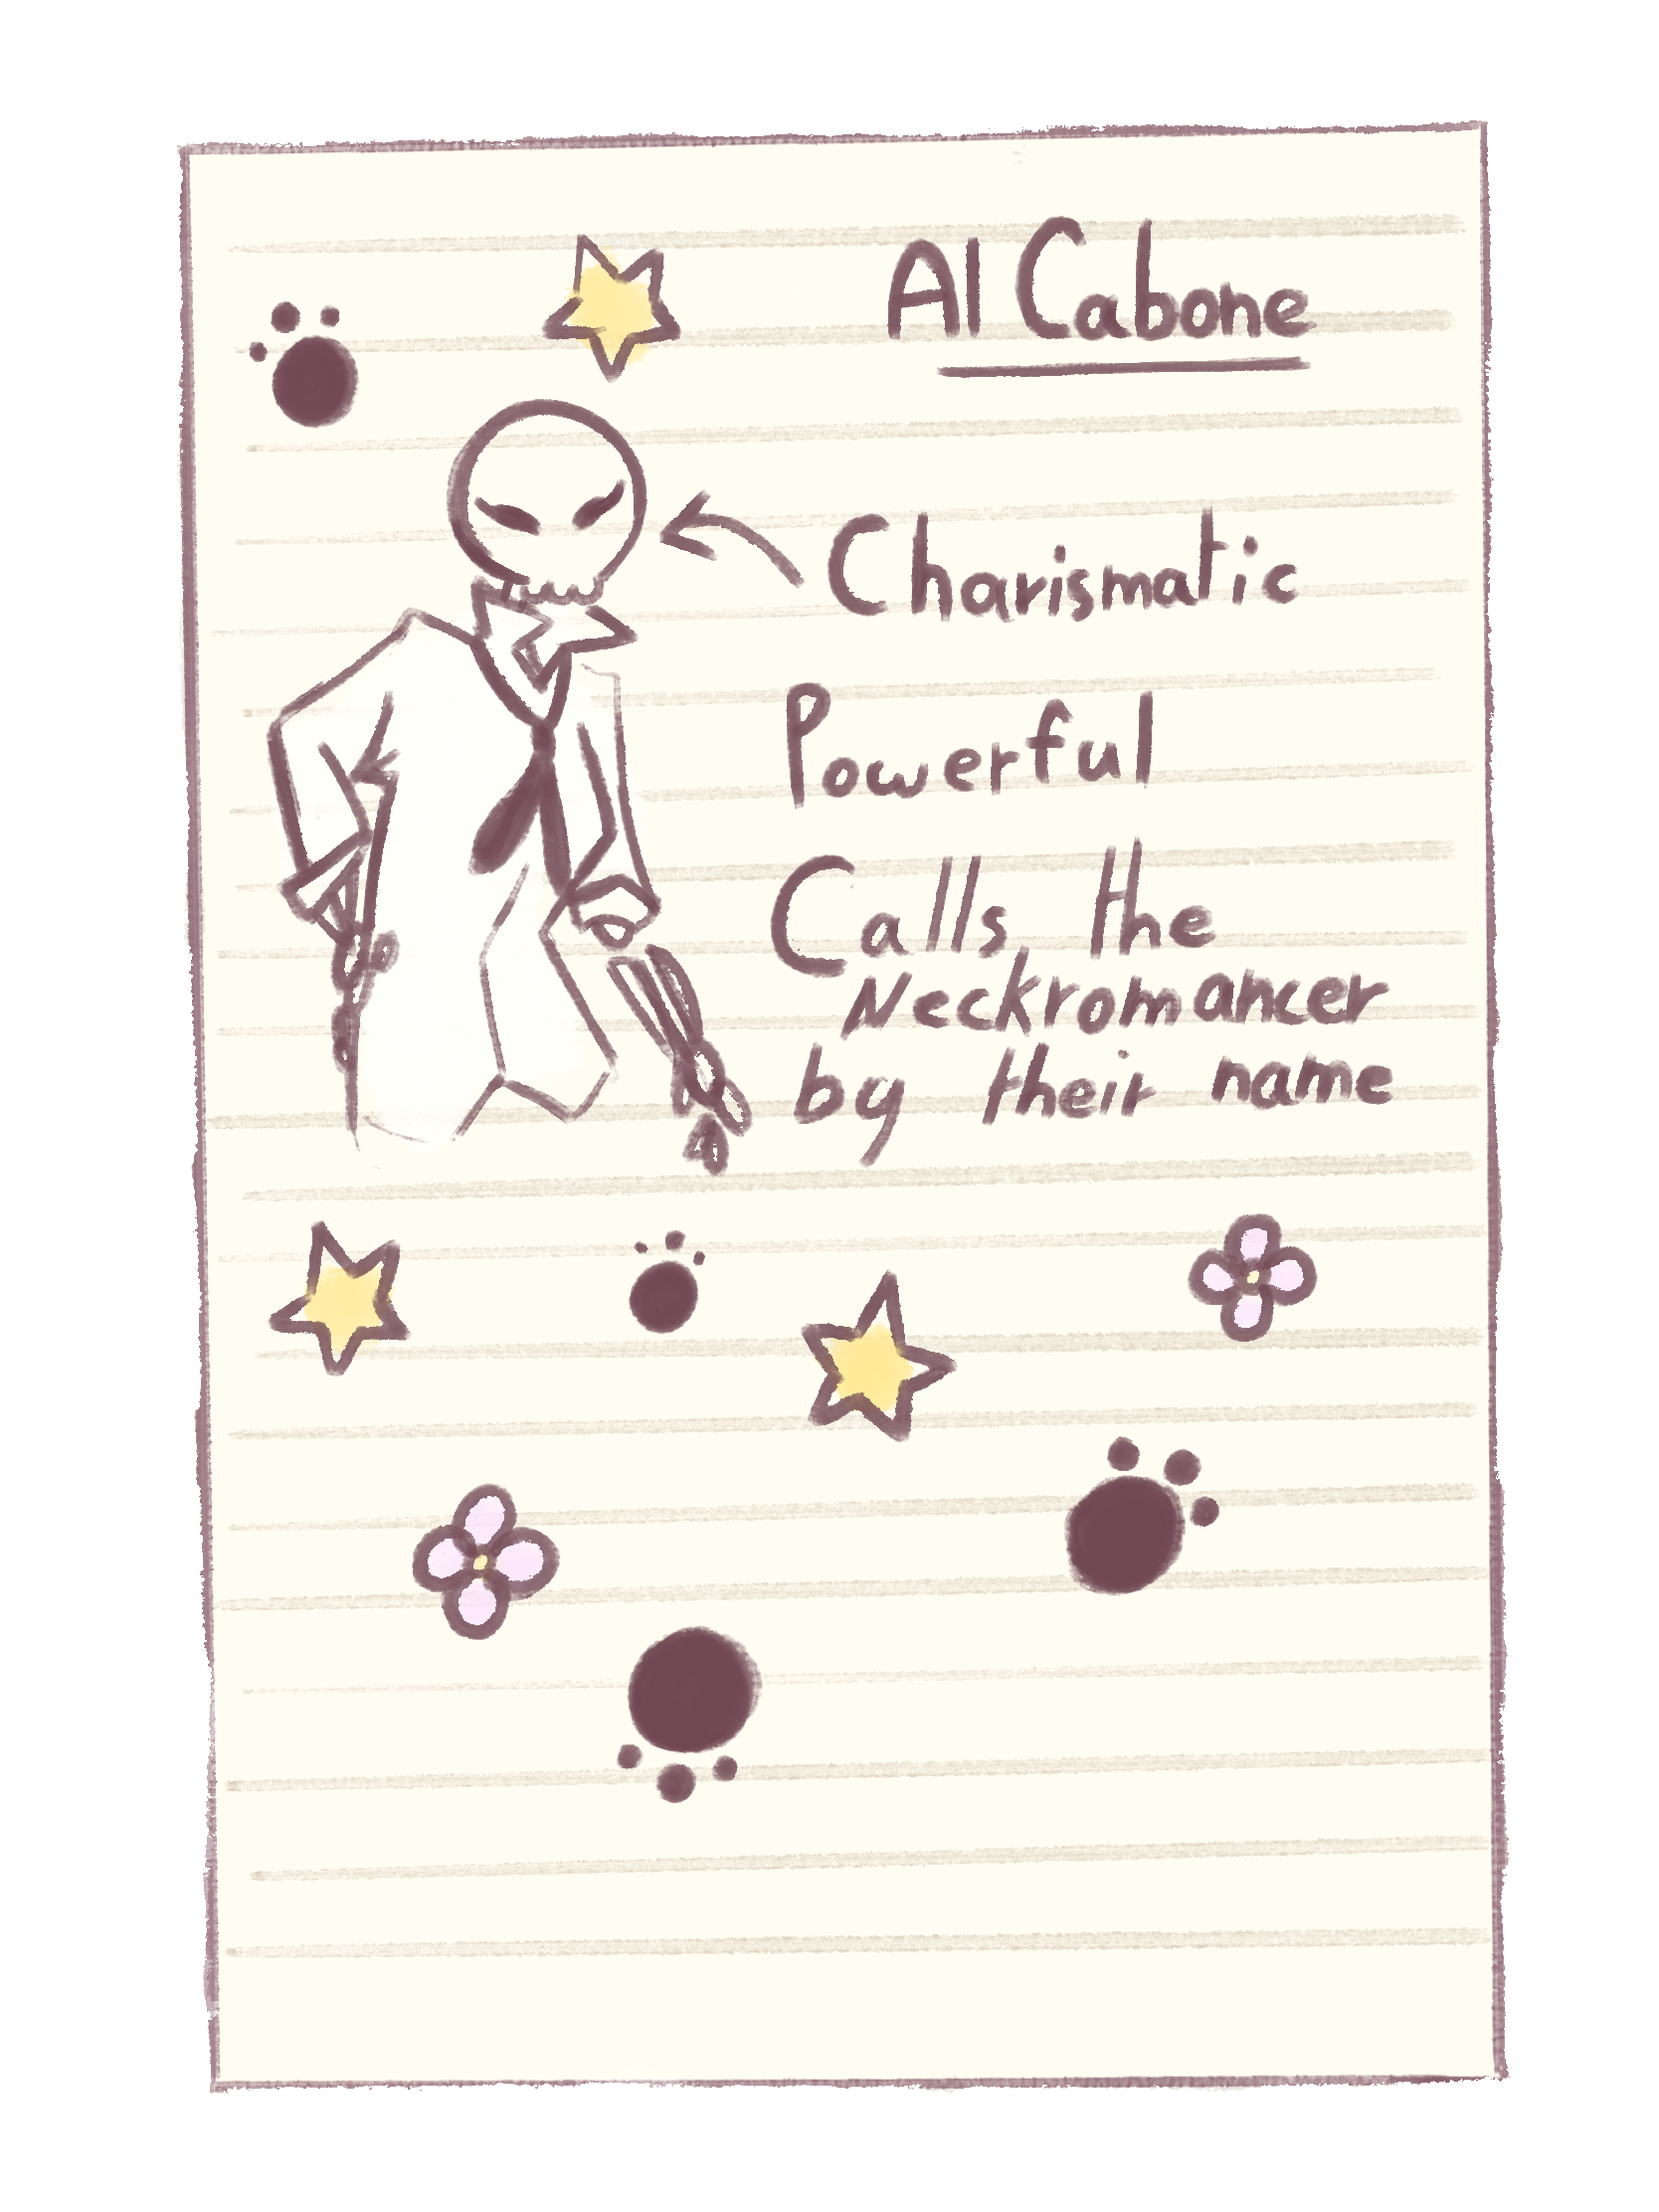 Al Cabone
Charismatic
Powerful
Calls the
Neckromancer
by their name